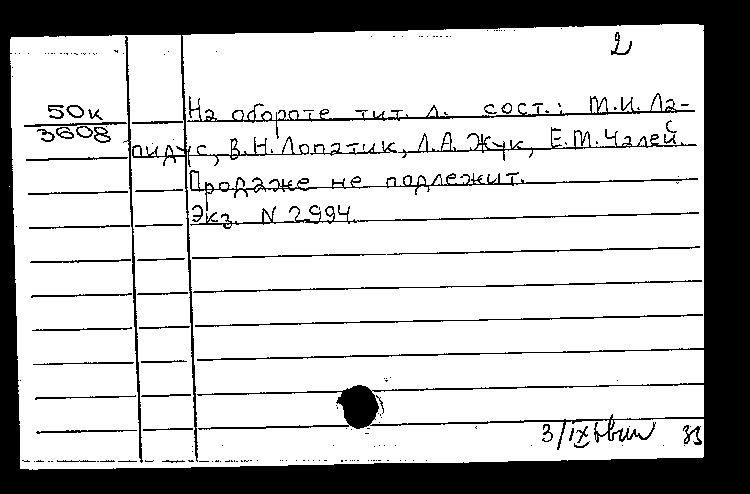 2
50к
3608
На обороте тит. л. сост.: М.И. Ла-
пидус, В.Н. Лопатик, Л.А. Жук, Е.М. Чалей.
Продаже не подлежит.
Экз. N 2994.
3/IX